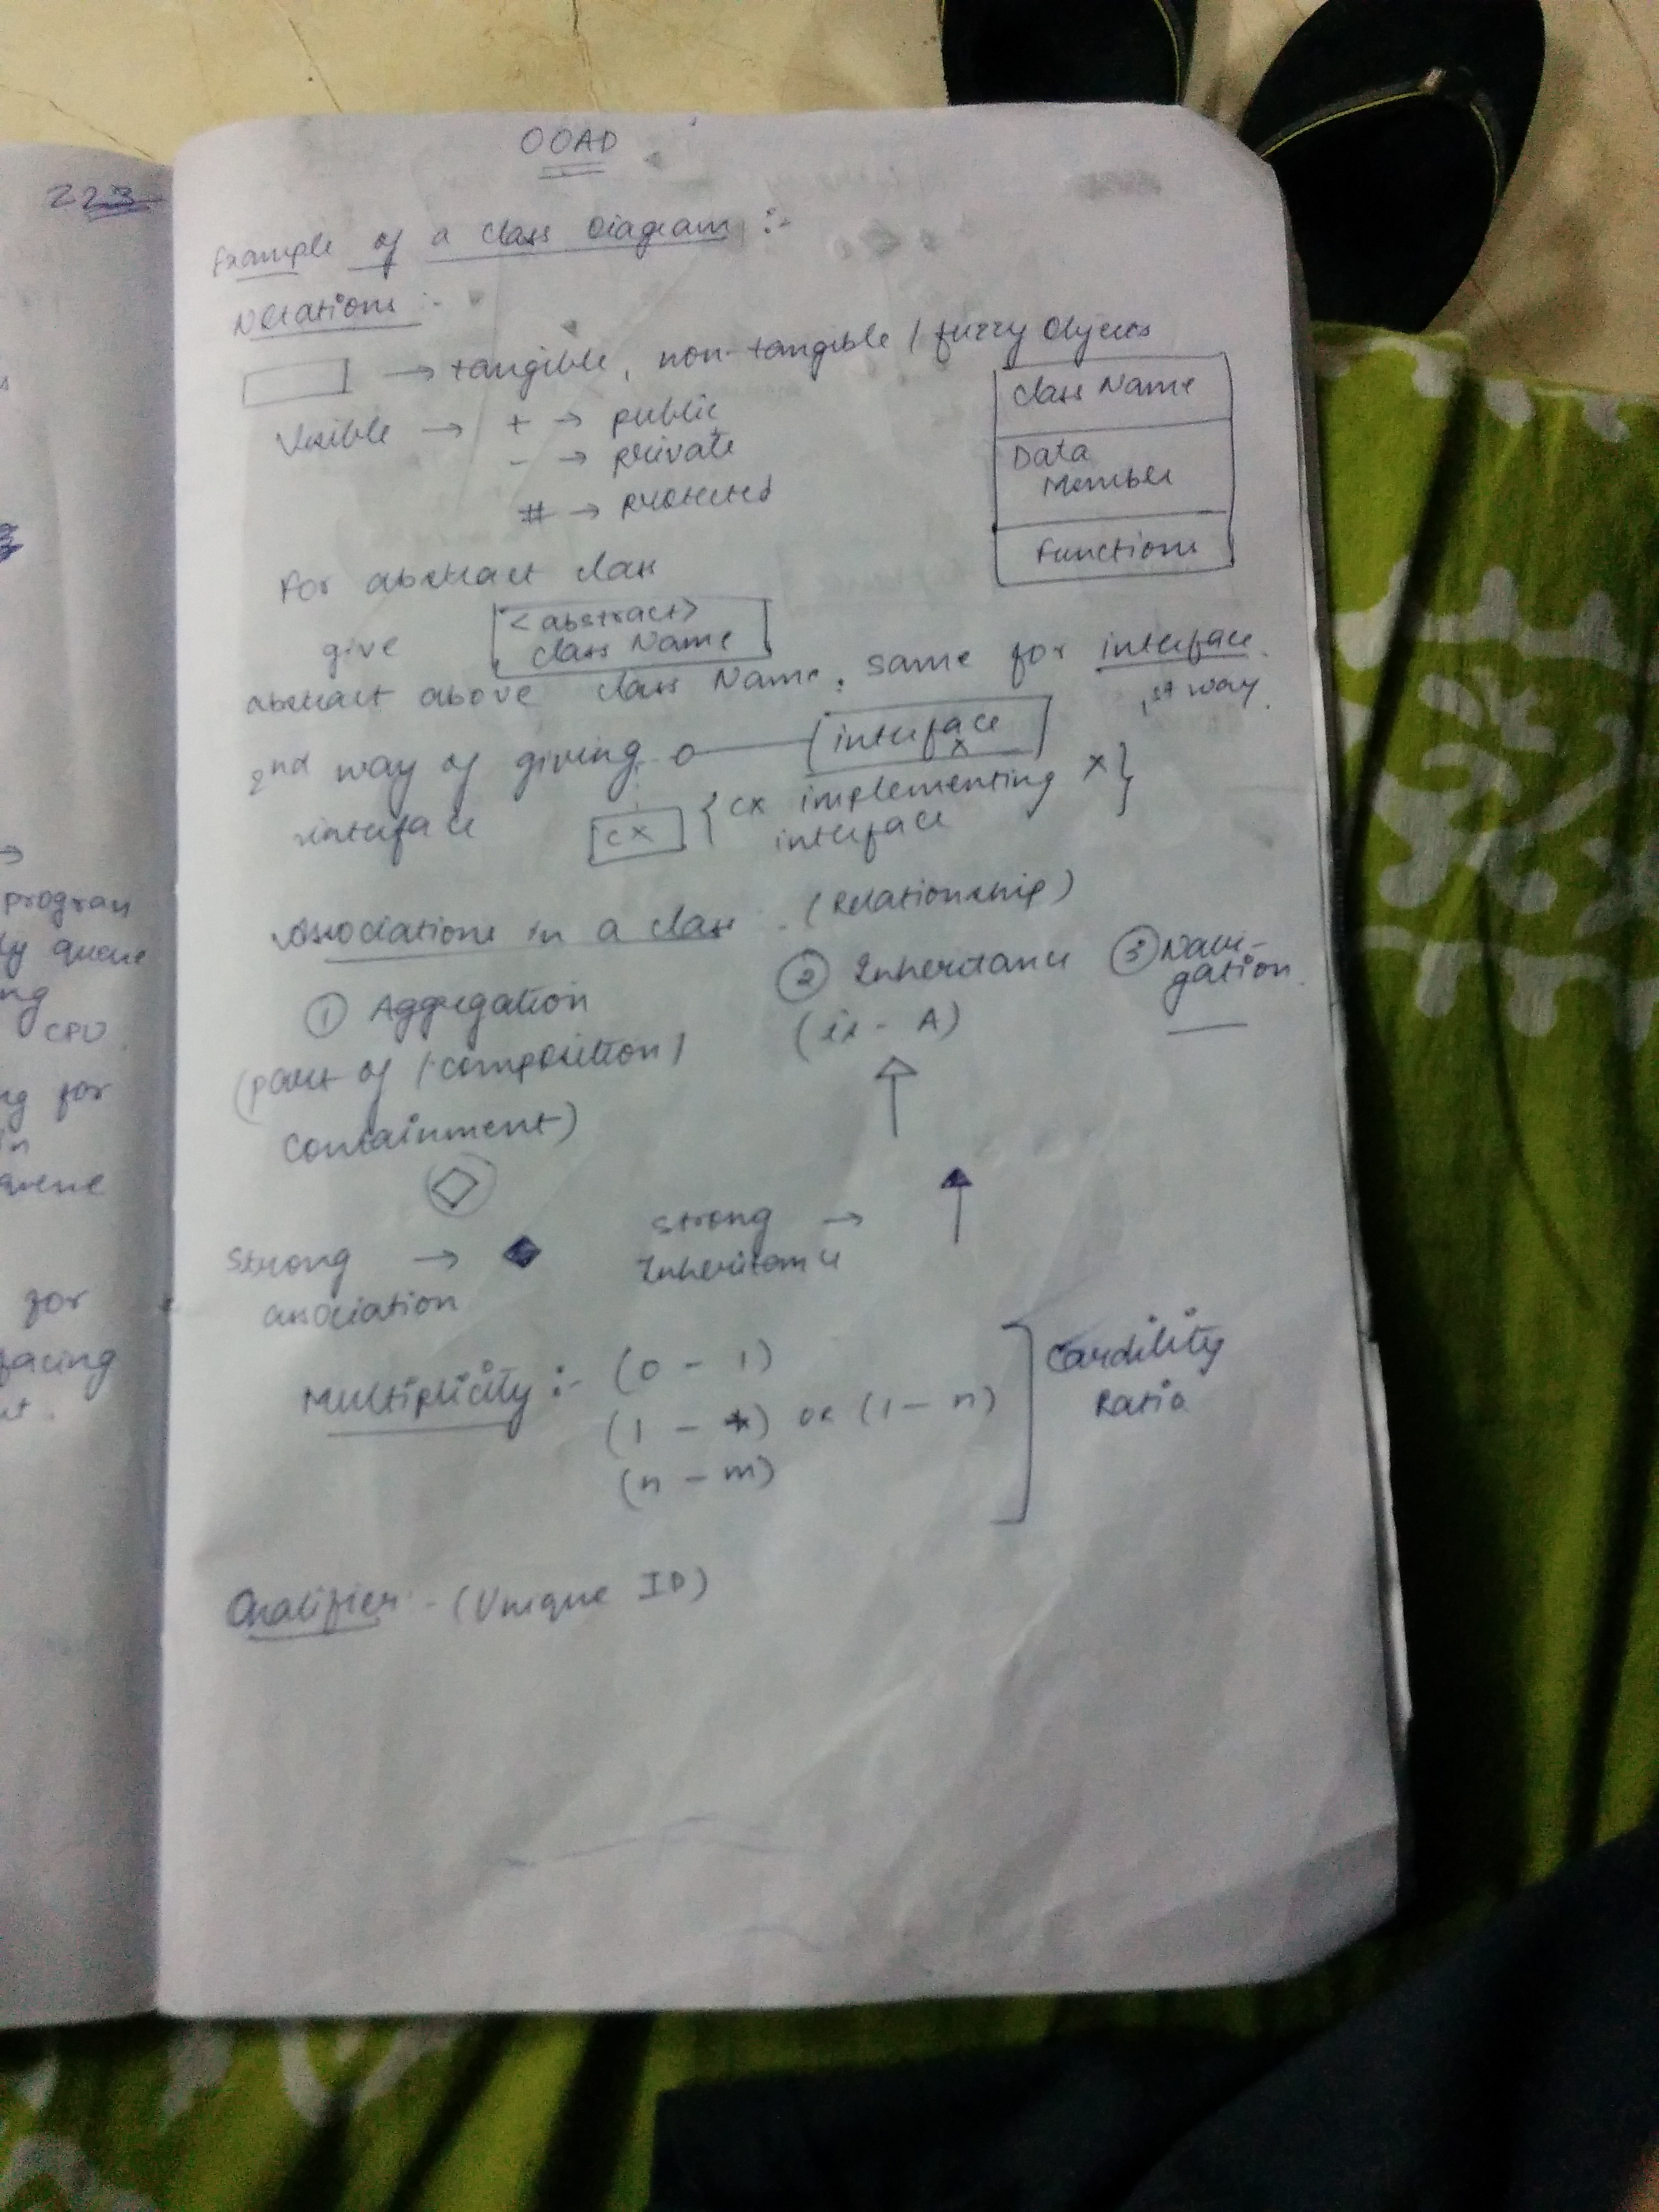 OOAD
223
Example of a Class Diagram :-
Notations :-
→ tangible, non-tangible / fuzzy Objects
Visible → + → public
- → private
# → protected
Class Name
Data
Member
Functions
For abstract class
give <abstract>
class Name
abstract above class Name, same for interface.
1st way.
2nd way of giving interface
x
interface cx { cx implementing x }
interface
Associations in a class . (Relationship)
① Aggregation ② Inheritance ③ Navi-
gation.
(part of / composition / (is - A)
Containment)
Strong → Strong →
association Inheritance
Multiplicity :- (0 - 1)
(1 - *) or (1 - n)
(n - m)
Cardility
Ratio
Qualifier - (Unique ID)
program
queue
ng
CPU.
ng for
in
queue
for
facing